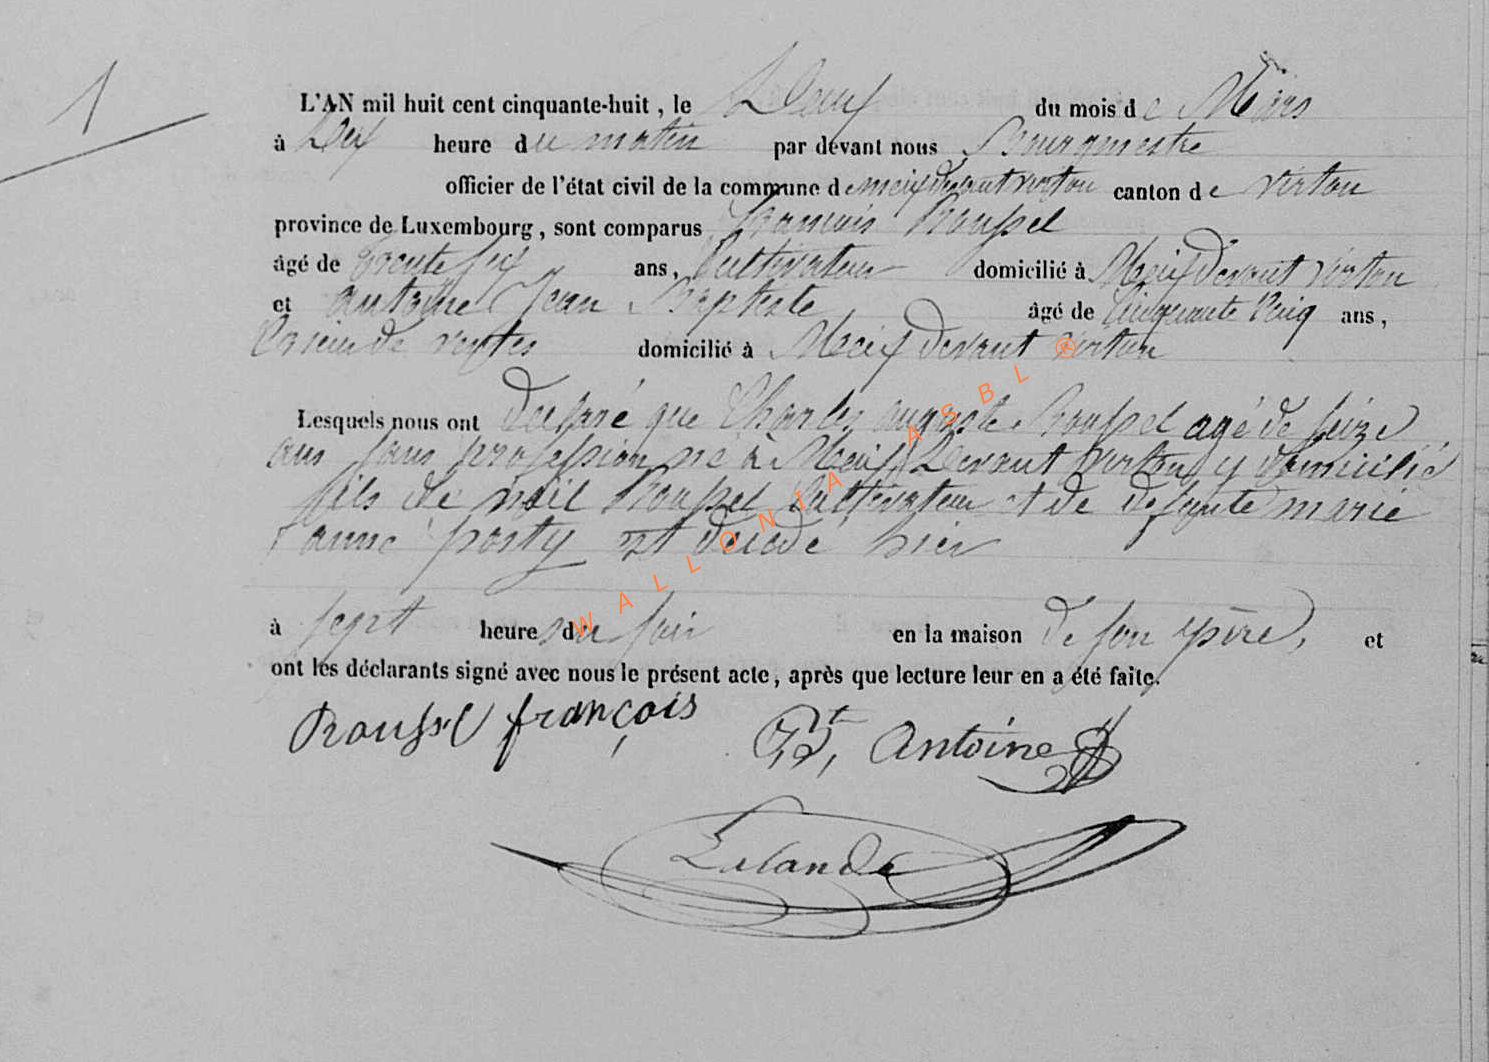 1
L'AN mil huit cent cinquante-huit, le Deux du mois de Mars
à Dix heure du matin par devant nous Bourgmestre
officier de l'état civil de la commune de meix devant virton canton de virton
province de Luxembourg, sont comparus François Roussel
âgé de trente six ans, Cultivateur domicilié à Meix devant virton
et antoine Jean Baptiste âgé de Cinquante Cinq ans,
domicilié à Meix devant virton
Lesquels nous ont déclaré que Charles auguste Roussel agé de seize
ans sans profession né à Meix Devant virton y domicilié
fils de noël Roussel Cultivateur et de defunte marie
anne posty est décédé hier
à sept heures du soir en la maison de son père, et
ont les déclarants signé avec nous le présent acte, après que lecture leur en a été faite.
Roussel françois Bt, Antoine
Lalande
WALLONIA ASBL ®